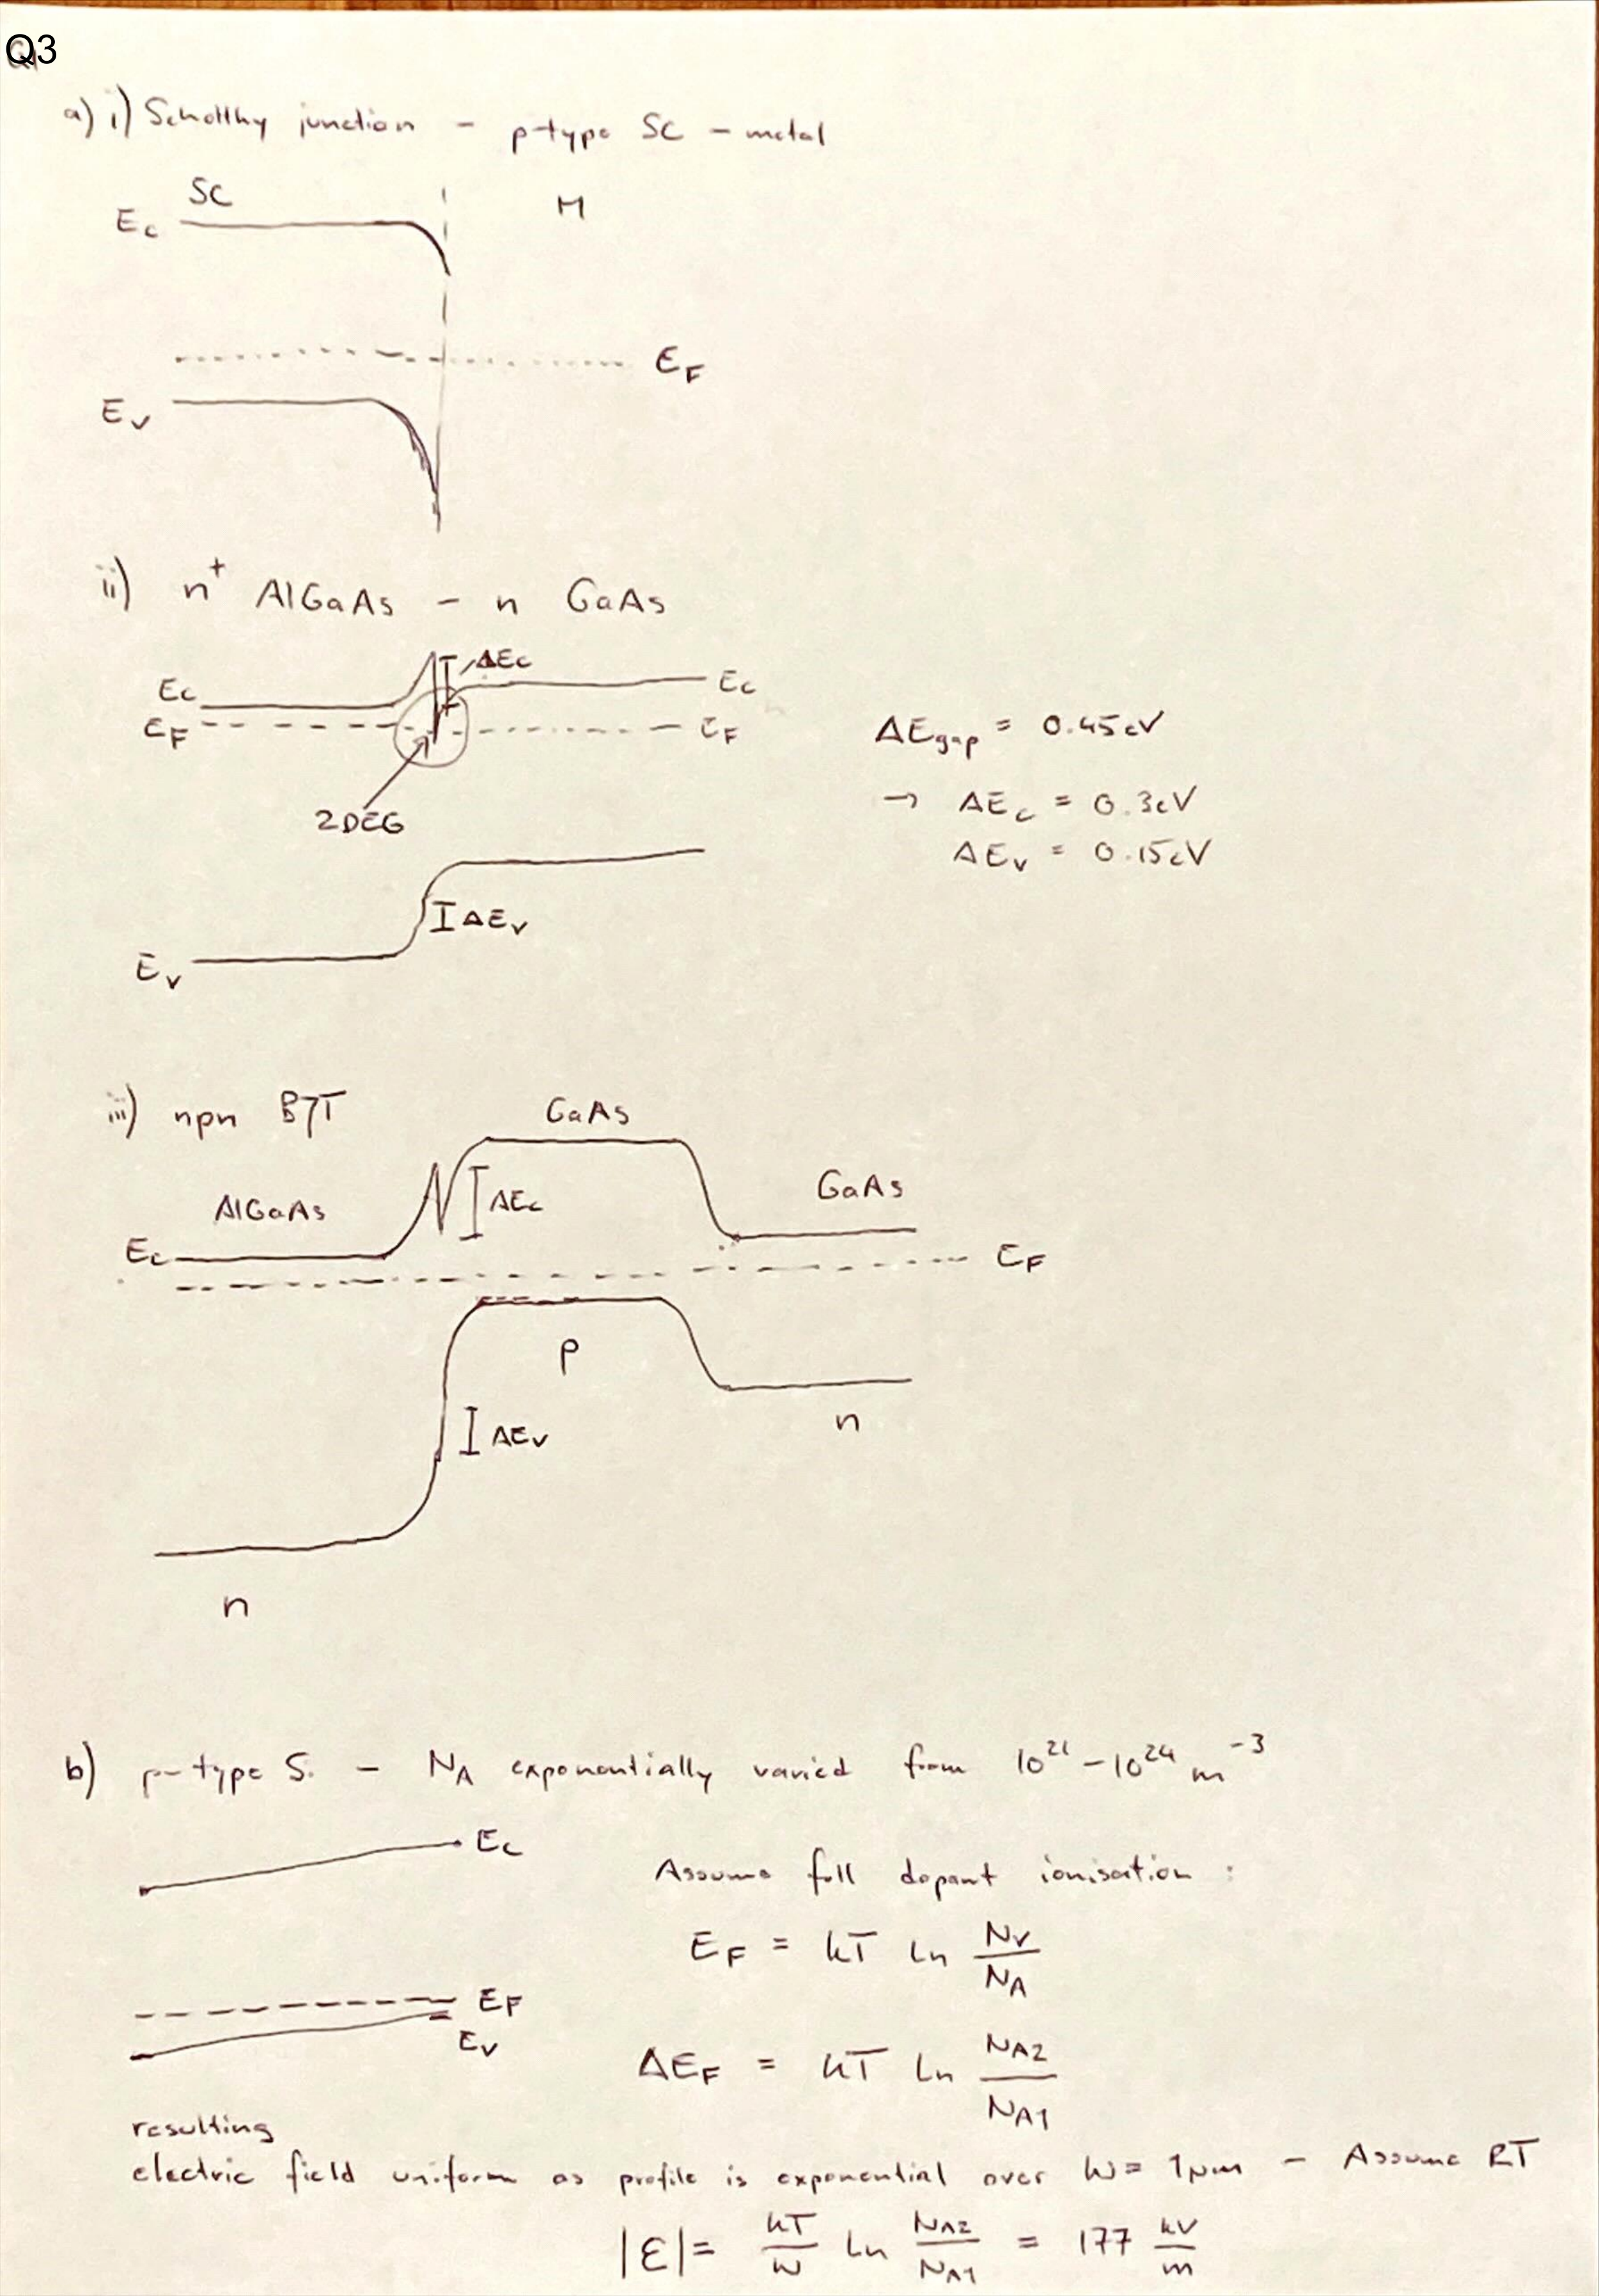 Q3
a) i) Schottky junction - p-type SC - metal
SC
M
Ec
EF
Ev
ii) n+ AlGaAs - n GaAs
ΔEc
Ec
Ec
EF
EF
ΔEgap = 0.45eV
→ ΔEc = 0.3eV
2DEG
ΔEv = 0.15eV
ΔEv
Ev
iii) npn BJT
GaAs
GaAs
AlGaAs
ΔEc
Ec
EF
p
n
ΔEv
n
b) p-type Si - NA exponentially varied from 10^21 - 10^24 m^-3
Ec
Assume full dopant ionisation :
EF = kT ln NV/NA
EF
Ev
ΔEF = kT ln NA2/NA1
resulting
electric field uniform as profile is exponential over W = 1μm - Assume RT
|ε| = kT/W ln NA2/NA1 = 177 kV/m